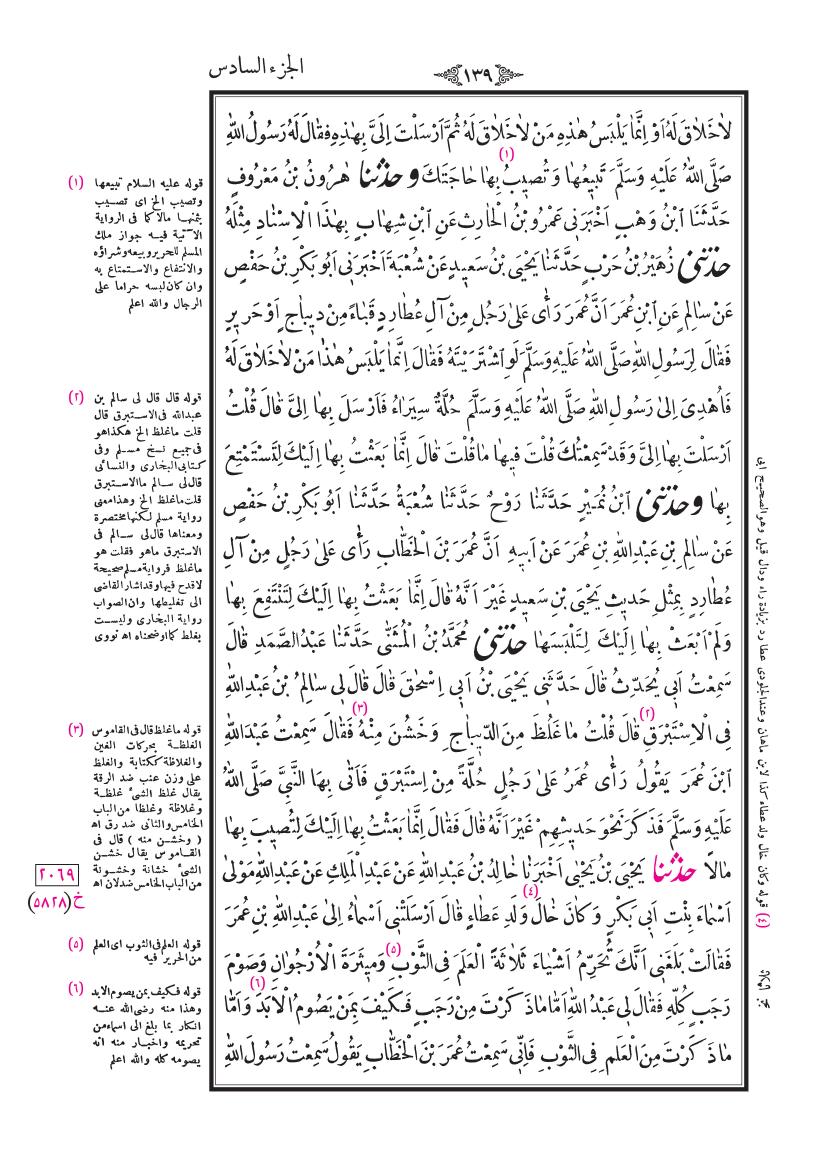 الجزء السادس
١٣٩
لَاخَلَاقَ لَهُ اَوْ اِنَّمَا يَلْبَسُ هٰذِهِ مَنْ لَاخَلَاقَ لَهُ ثُمَّ اَرْسَلْتَ اِلَىَّ بِهٰذِهِ فَقَالَ لَهُ رَسُولُ اللهِ
صَلَّى اللهُ عَلَيْهِ وَسَلَّمَ تَبِيعُهَا وَتُصِيبُ (١) بِهَا حَاجَتَكَ وَحَدَّثَنَا هٰرُونُ بْنُ مَعْرُوفٍ
حَدَّثَنَا ابْنُ وَهْبٍ اَخْبَرَنِى عَمْرُو بْنُ الْحَارِثِ عَنِ ابْنِ شِهَابٍ بِهٰذَا الْاِسْنَادِ مِثْلَهُ
حَدَّثَنِى زُهَيْرُ بْنُ حَرْبٍ حَدَّثَنَا يَحْيَى بْنُ سَعِيدٍ عَنْ شُعْبَةَ اَخْبَرَنِى اَبُو بَكْرِ بْنُ حَفْصٍ
عَنْ سَالِمٍ عَنِ ابْنِ عُمَرَ اَنَّ عُمَرَ رَأَى عَلَى رَجُلٍ مِنْ آلِ عُطَارِدٍ قَبَاءً مِنْ دِيبَاجٍ اَوْ حَرِيرٍ
فَقَالَ لِرَسُولِ اللهِ صَلَّى اللهُ عَلَيْهِ وَسَلَّمَ لَوِ اشْتَرَيْتَهُ فَقَالَ اِنَّمَا يَلْبَسُ هٰذَا مَنْ لَاخَلَاقَ لَهُ
فَاُهْدِىَ اِلَى رَسُولِ اللهِ صَلَّى اللهُ عَلَيْهِ وَسَلَّمَ حُلَّةٌ سِيَرَاءُ فَاَرْسَلَ بِهَا اِلَىَّ قَالَ قُلْتُ
اَرْسَلْتَ بِهَا اِلَىَّ وَقَدْ سَمِعْتُكَ قُلْتَ فِيهَا مَا قُلْتَ قَالَ اِنَّمَا بَعَثْتُ بِهَا اِلَيْكَ لِتَسْتَمْتِعَ
بِهَا وَحَدَّثَنِى ابْنُ نُمَيْرٍ حَدَّثَنَا رَوْحٌ حَدَّثَنَا شُعْبَةُ حَدَّثَنَا اَبُو بَكْرِ بْنُ حَفْصٍ
عَنْ سَالِمِ بْنِ عَبْدِ اللهِ بْنِ عُمَرَ عَنْ اَبِيهِ اَنَّ عُمَرَ بْنَ الْخَطَّابِ رَأَى عَلَى رَجُلٍ مِنْ آلِ
عُطَارِدٍ بِمِثْلِ حَدِيثِ يَحْيَى بْنِ سَعِيدٍ غَيْرَ اَنَّهُ قَالَ اِنَّمَا بَعَثْتُ بِهَا اِلَيْكَ لِتَنْتَفِعَ بِهَا
وَلَمْ اَبْعَثْ بِهَا اِلَيْكَ لِتَلْبَسَهَا حَدَّثَنِى مُحَمَّدُ بْنُ الْمُثَنَّى حَدَّثَنَا عَبْدُ الصَّمَدِ قَالَ
سَمِعْتُ اَبِى يُحَدِّثُ قَالَ حَدَّثَنِى يَحْيَى بْنُ اَبِى اِسْحٰقَ قَالَ قَالَ لِى سَالِمُ بْنُ عَبْدِ اللهِ
فِى الْاِسْتَبْرَقِ (٢) قَالَ قُلْتُ مَا غَلُظَ مِنَ الدِّيبَاجِ وَخَشُنَ مِنْهُ (٣) فَقَالَ سَمِعْتُ عَبْدَ اللهِ
ابْنَ عُمَرَ يَقُولُ رَأَى عُمَرُ عَلَى رَجُلٍ حُلَّةً مِنْ اِسْتَبْرَقٍ فَاَتَى بِهَا النَّبِىَّ صَلَّى اللهُ
عَلَيْهِ وَسَلَّمَ فَذَكَرَ نَحْوَ حَدِيثِهِمْ غَيْرَ اَنَّهُ قَالَ فَقَالَ اِنَّمَا بَعَثْتُ بِهَا اِلَيْكَ لِتُصِيبَ بِهَا
مَالًا حَدَّثَنَا يَحْيَى بْنُ يَحْيَى اَخْبَرَنَا خَالِدُ بْنُ عَبْدِ اللهِ عَنْ عَبْدِ الْمَلِكِ عَنْ عَبْدِ اللهِ مَوْلَى
اَسْمَاءَ بِنْتِ اَبِى بَكْرٍ وَكَانَ خَالَ وَلَدِ عَطَاءٍ (٤) قَالَ اَرْسَلَتْنِى اَسْمَاءُ اِلَى عَبْدِ اللهِ بْنِ عُمَرَ
فَقَالَتْ بَلَغَنِى اَنَّكَ تُحَرِّمُ اَشْيَاءَ ثَلَاثَةً الْعَلَمَ فِى الثَّوْبِ (٥) وَمِيثَرَةَ الْاُرْجُوَانِ وَصَوْمَ
رَجَبٍ كُلِّهِ فَقَالَ لِى عَبْدُ اللهِ اَمَّا مَا ذَكَرْتَ مِنْ رَجَبٍ فَكَيْفَ بِمَنْ يَصُومُ الْاَبَدَ (٦) وَاَمَّا
مَا ذَكَرْتَ مِنَ الْعَلَمِ فِى الثَّوْبِ فَاِنِّى سَمِعْتُ عُمَرَ بْنَ الْخَطَّابِ يَقُولُ سَمِعْتُ رَسُولَ اللهِ
(١) قوله عليه السلام تبيعها
وتصيب الخ اى تصيب
بثمنها مالا كما فى الرواية
الآتية فيه جواز ملك
المسلم للحرير وبيعه وشراؤه
والانتفاع والاستمتاع به
وان كان لبسه حراما على
الرجال والله اعلم
(٢) قوله قال قال لى سالم بن
عبدالله فى الاستبرق قال
قلت ماغلظ الخ هكذا هو
فى جميع نسخ مسلم وفى
كتابى البخارى والنسائى
قال لى سالم ما الاستبرق
قلت ماغلظ الخ وهذا معنى
رواية مسلم لكنها مختصرة
ومعناها قال لى سالم فى
الاستبرق ماهو فقلت هو
ماغلظ فرواية مسلم صحيحة
لاقدح فيها وقد اشار القاضى
الى تغليطها وان الصواب
رواية البخارى وليست
بغلط كما اوضحناه اه نووى
(٣) قوله ماغلظ قال فى القاموس
الغلظة بحركات الغين
والغلاظة ككتابة والغلظ
على وزن عنب ضد الرقة
يقال غلظ الشئ غلظة
وغلاظة وغلظا من الباب
الخامس والثانى ضد رق اه
( وخشن منه ) قال فى
القاموس يقال خشن
الشئ خشانة وخشونة
من الباب الخامس ضد لان اه
٢٠٦٩
خ (٥٨٢٨)
(٥) قوله العلم فى الثوب اى العلم
من الحرير فيه
(٦) قوله فكيف بمن يصوم الابد
وهذا منه رضى الله عنه
انكار بما بلغ الى اسماء من
تحريمه واخبار منه انه
يصومه كله والله اعلم
(٤) قوله وكان خال ولد عطاء كذا لابن ماهان وعند الجلودى عطارد بزيادة راء ودال قيل وهو الصحيح ابى